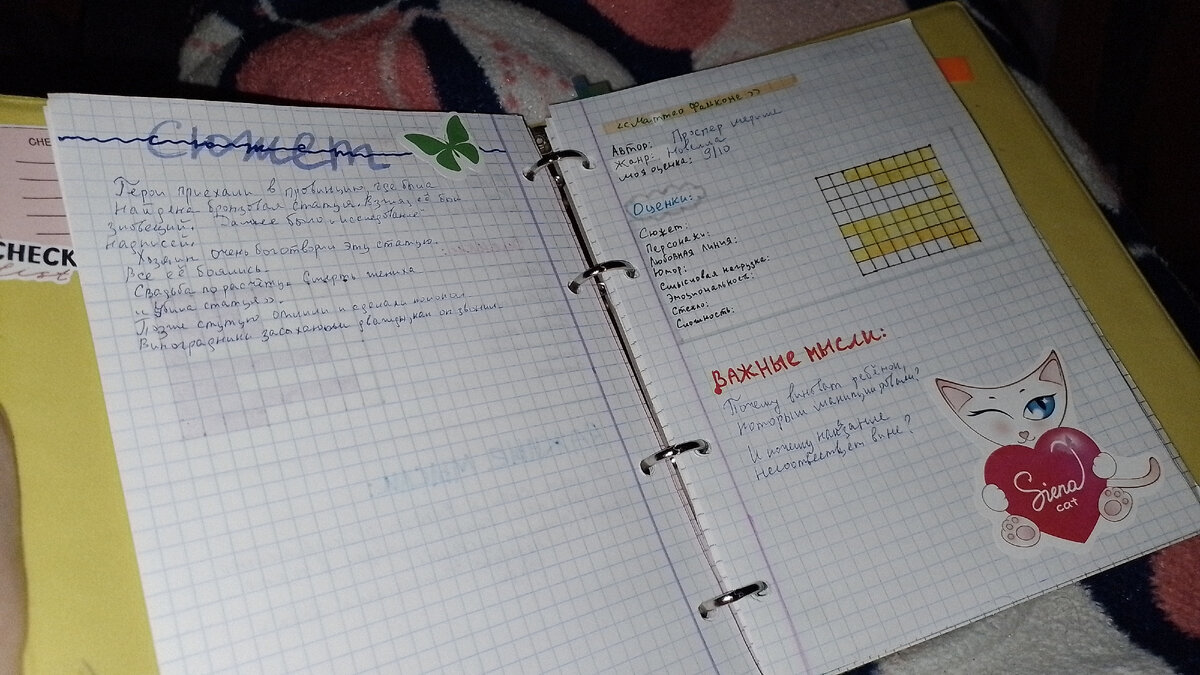 CHE
CHECK
list
Сюжет
Герои приехали в провинцию, где была
найдена бронзовая статуя. Взгляд её был
зловещий. Также было исследование
надписей.
Хозяин очень боготворил эту статую.
Все её боялись.
Свадьба по расчёту. Смерть жениха.
"Убила статуя".
Позже статую отлили и сделали колокол
Виноградники засыхали дважды, как он звонил.
«Маттео Фальконе»
Автор: Проспер Мериме
Жанр: Новелла
моя оценка: 9/10
Оценки:
Сюжет:
Персонажи:
Любовная линия:
Юмор:
Смысловая нагрузка:
Эмоциональность:
Стекло:
Сложность:
ВАЖНЫЕ МЫСЛИ:
Почему виноват ребёнок,
которым манипулировали?
И почему наказание
несоответствует вине?
Siena
cat